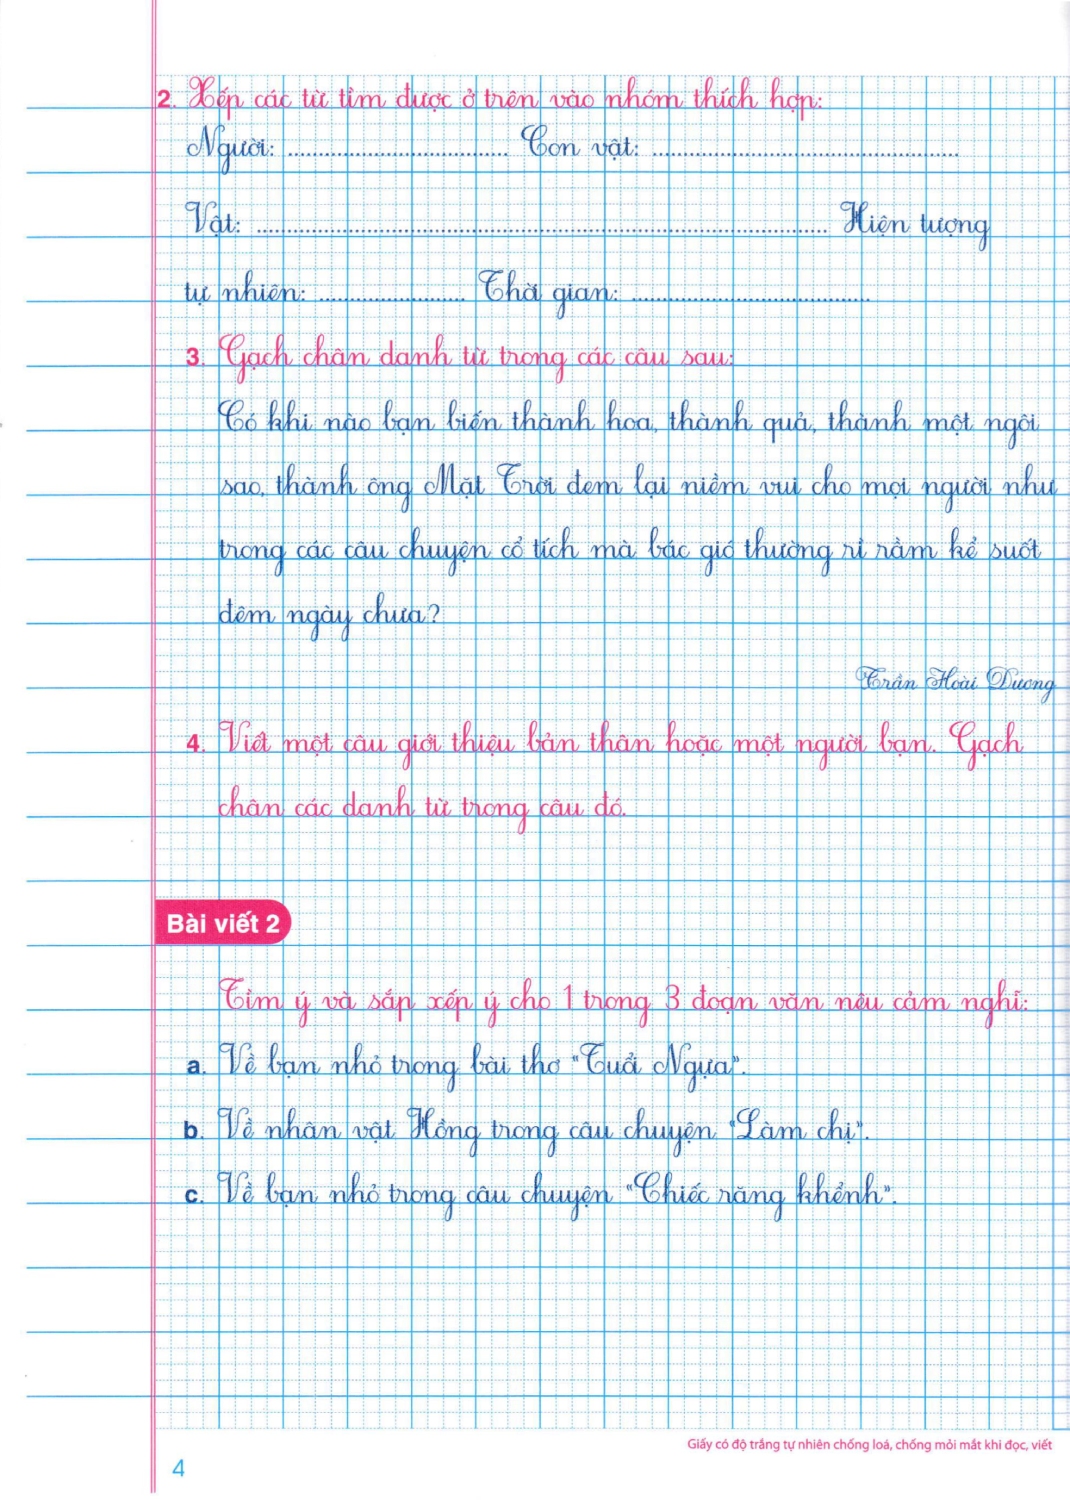 2. Xếp các từ tìm được ở trên vào nhóm thích hợp:
Người: .................................. Con vật: ................................................
Vật: ......................................................................................... Hiện tượng
tự nhiên: ....................... Thời gian: .....................................
3. Gạch chân danh từ trong các câu sau:
Có khi nào bạn biến thành hoa, thành quả, thành một ngôi
sao, thành ông Mặt Trời đem lại niềm vui cho mọi người như
trong các câu chuyện cổ tích mà bác gió thường rỉ rầm kể suốt
đêm ngày chưa?
Trần Hoài Dương
4. Viết một câu giới thiệu bản thân hoặc một người bạn. Gạch
chân các danh từ trong câu đó.
Bài viết 2
Tìm ý và sắp xếp ý cho 1 trong 3 đoạn văn nêu cảm nghĩ:
a. Về bạn nhỏ trong bài thơ "Tuổi Ngựa".
b. Về nhân vật Hồng trong câu chuyện "Làm chị".
c. Về bạn nhỏ trong câu chuyện "Chiếc răng khểnh".
Giấy có độ trắng tự nhiên chống loá, chống mỏi mắt khi đọc, viết
4